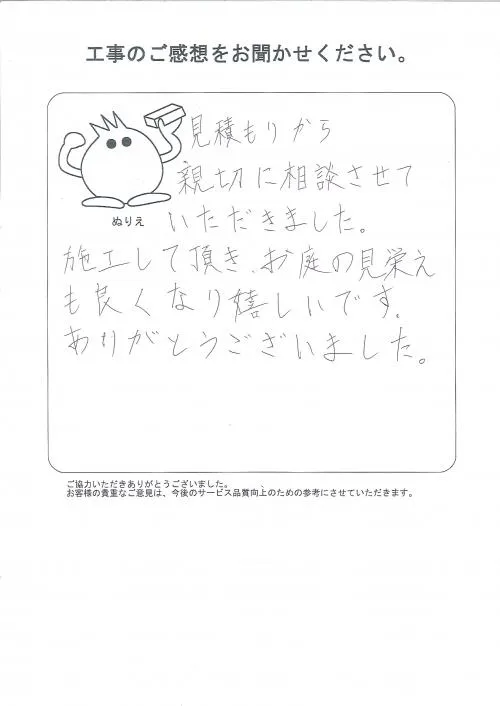 工事のご感想をお聞かせください。
見積もりから
親切に相談させて
ぬりえ
いただきました。
施工して頂き、お庭の見栄え
も良くなり嬉しいです。
ありがとうございました。
ご協力いただきありがとうございました。
お客様の貴重なご意見は、今後のサービス品質向上のための参考にさせていただきます。